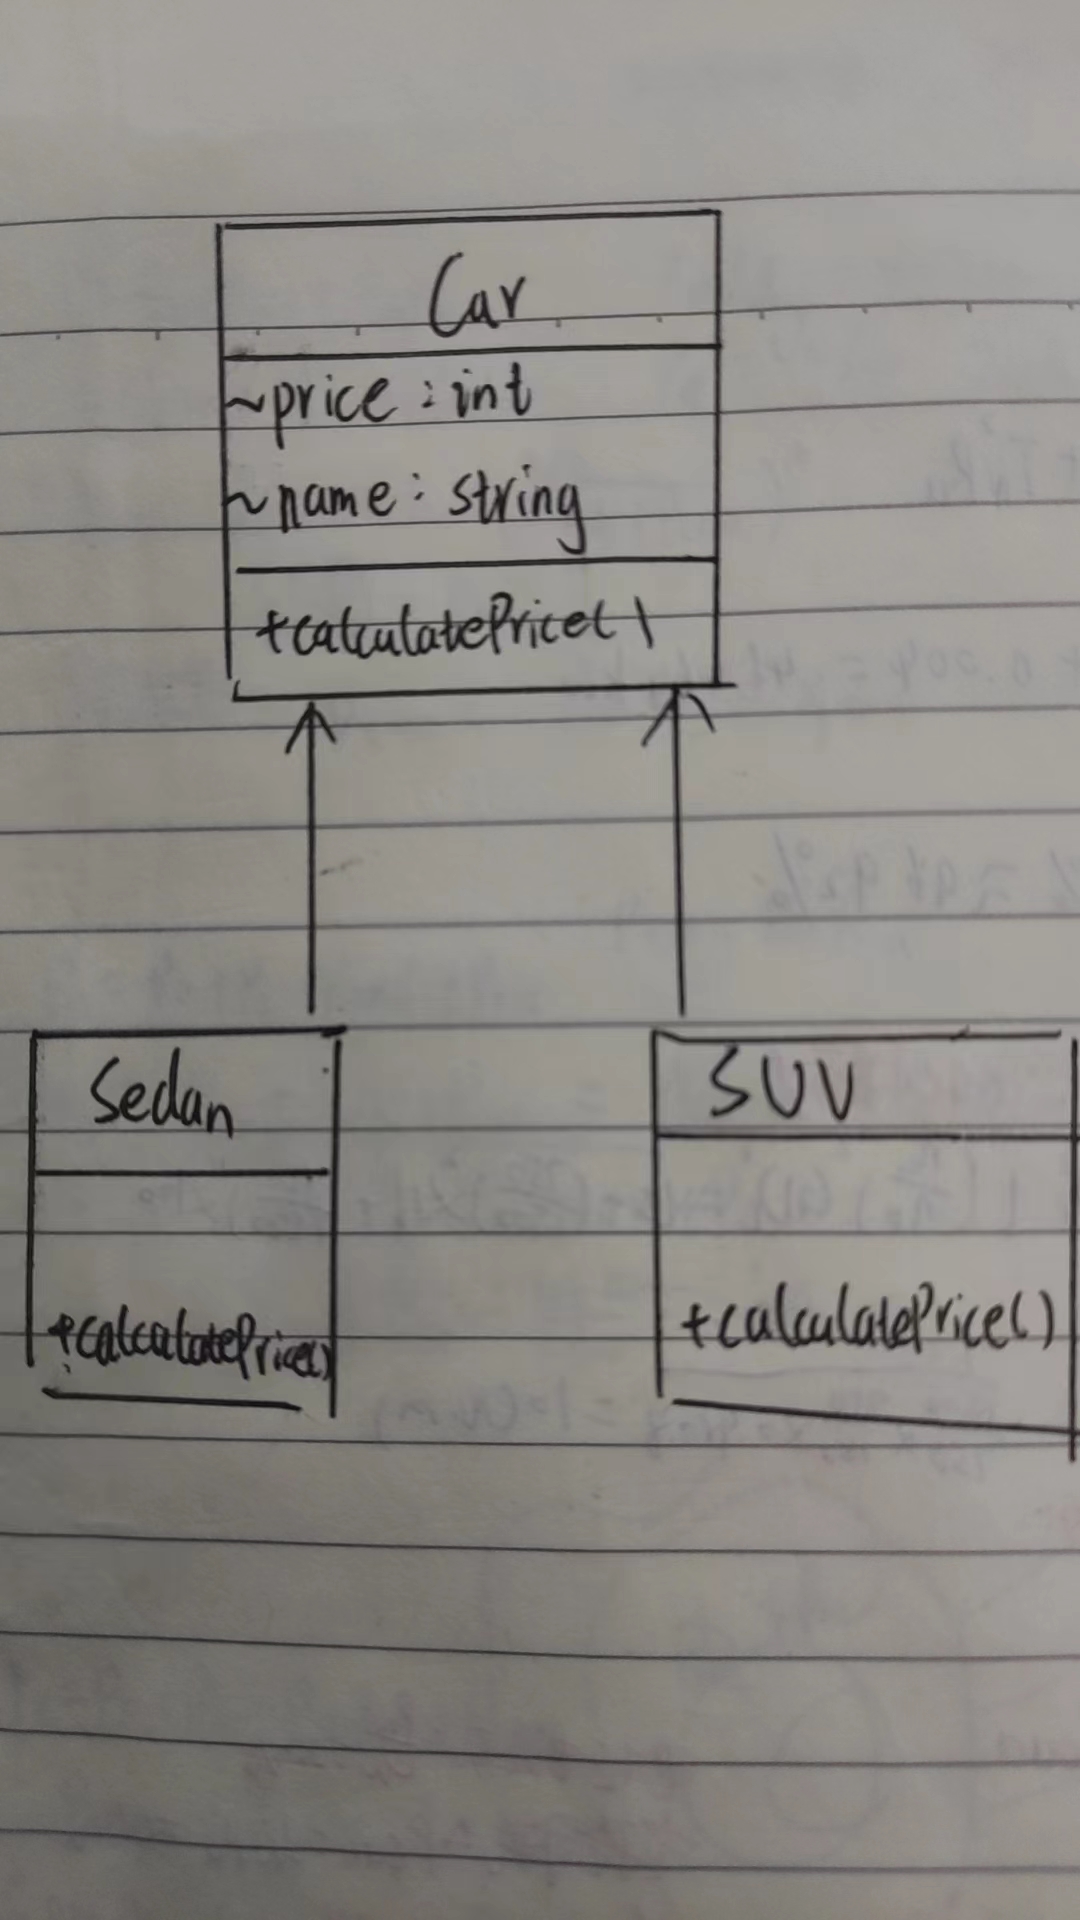 Car
~price : int
~name : string
+calculatePrice()
Sedan
+calculatePrice()
SUV
+calculatePrice()